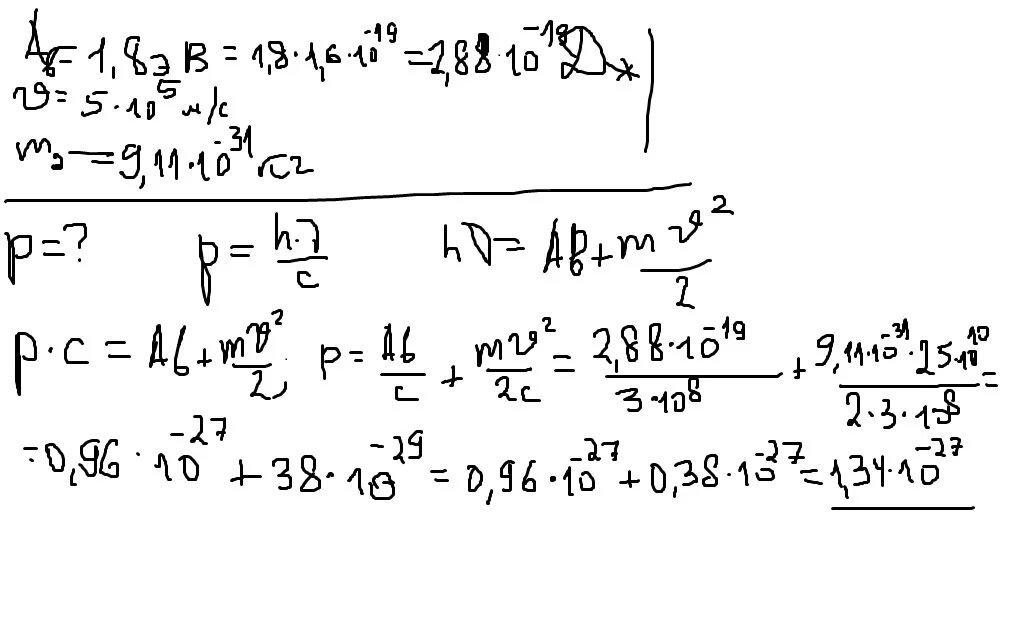 Aв = 1,8 эВ = 1,8·1,6·10⁻¹⁹ = 2,88·10⁻¹⁹ Дж
υ = 5·10⁵ м/с
mэ = 9,11·10⁻³¹ кг
p = ? p = h·ν/c hν = Aв + mυ²/2
p·c = Aв + mυ²/2; p = Aв/c + mυ²/2c = 2,88·10⁻¹⁹/3·10⁸ + 9,11·10⁻³¹·25·10¹⁰/2·3·10⁸ =
= 0,96·10⁻²⁷ + 38·10⁻²⁹ = 0,96·10⁻²⁷ + 0,38·10⁻²⁷ = 1,34·10⁻²⁷